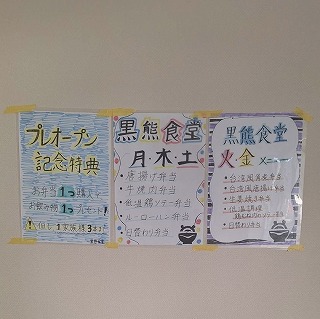 プレオープン
記念特典
お弁当1つ購入で
お飲み物1つプレゼント!
黒熊食堂
月・木・土
・唐揚げ弁当
・牛焼肉弁当
・低温鶏ソテー弁当
・ルーローハン弁当
・日替わり弁当
黒熊食堂
火・金 メニュー
・生姜焼き弁当
・日替わり弁当